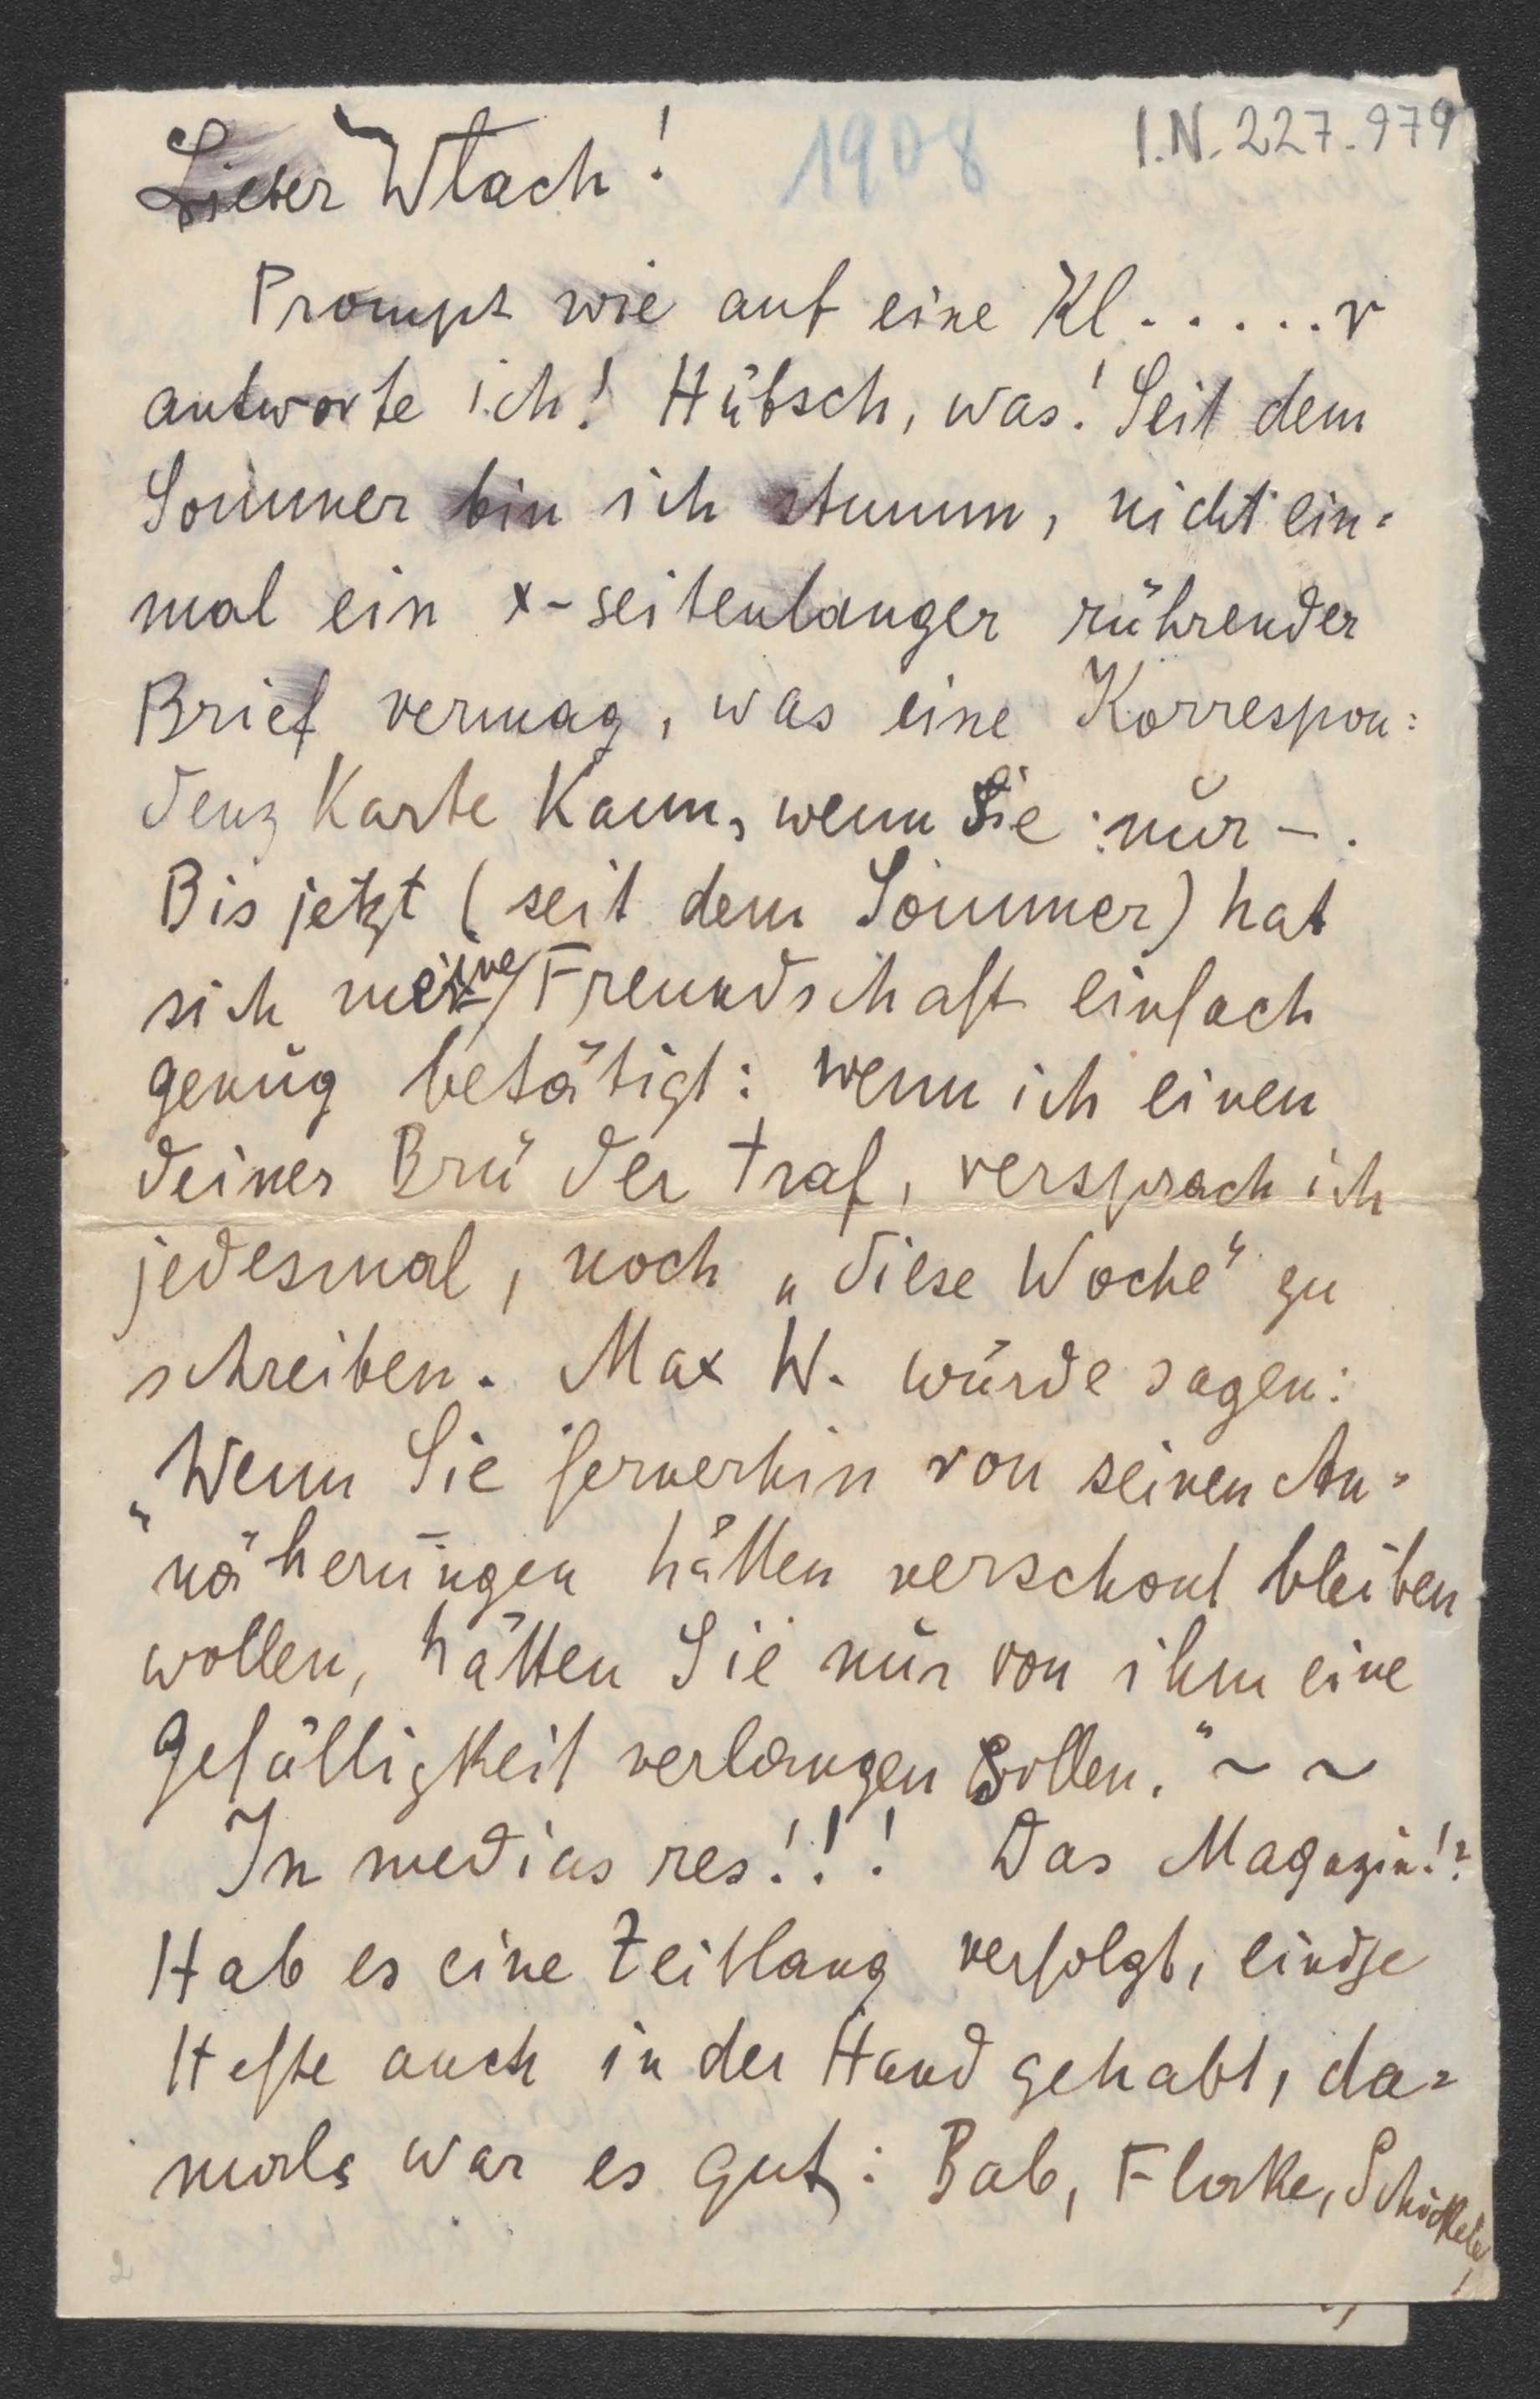 1908
I.N. 227.979
Lieber Wlach!
Prompt wie auf eine Kl.....r
antworte ich! Hübsch, was! Seit dem
Sommer bin ich stumm, nicht ein=
mal ein x-seitenlanger rührender
Brief vermag, was eine Korrespon=
denz Karte kann, wenn Sie nur –.
Bis jetzt (seit dem Sommer) hat
sich meine Freundschaft einfach
genug betätigt: wenn ich einen
deiner Brüder traf, versprach ich
jedesmal, noch „diese Woche“ zu
schreiben. Max W. würde sagen:
„Wenn Sie fernerhin von seinen An=
näherungen hätten verschont bleiben
wollen, hätten Sie nur von ihm eine
Gefälligkeit verlangen sollen.“ ~ ~
In medias res!!! Das Magazin!?
Hab es eine Zeitlang verfolgt,
Hefte auch in der Hand gehabt, da=
mals war es gut: Bab, Flake, Schickele,
2